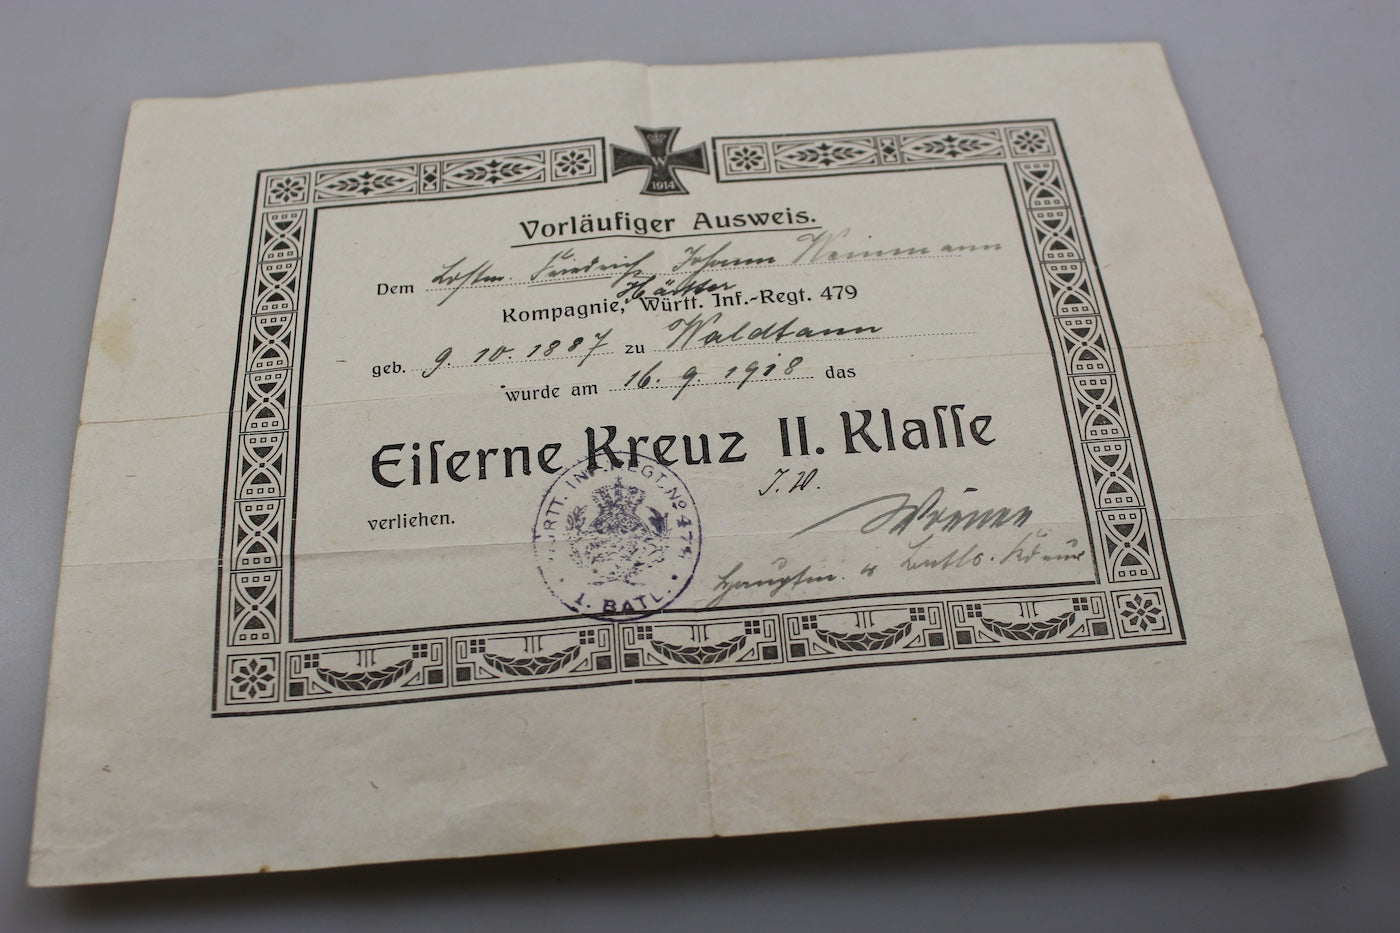 W
1914
Vorläufiger Ausweis.
Dem Ldstm. Friedrich Johann Weinmann
Kompagnie, Württ. Inf.-Regt. 479
geb. 9. 10. 1887 zu Waldtann
wurde am 16. 9. 1918 das
Eiſerne Kreuz II. Klaſſe
verliehen.
J. V.
Hauptm. u Batls. Kdeur
WÜRTT. INF. REGT. No 479
I. BATL.